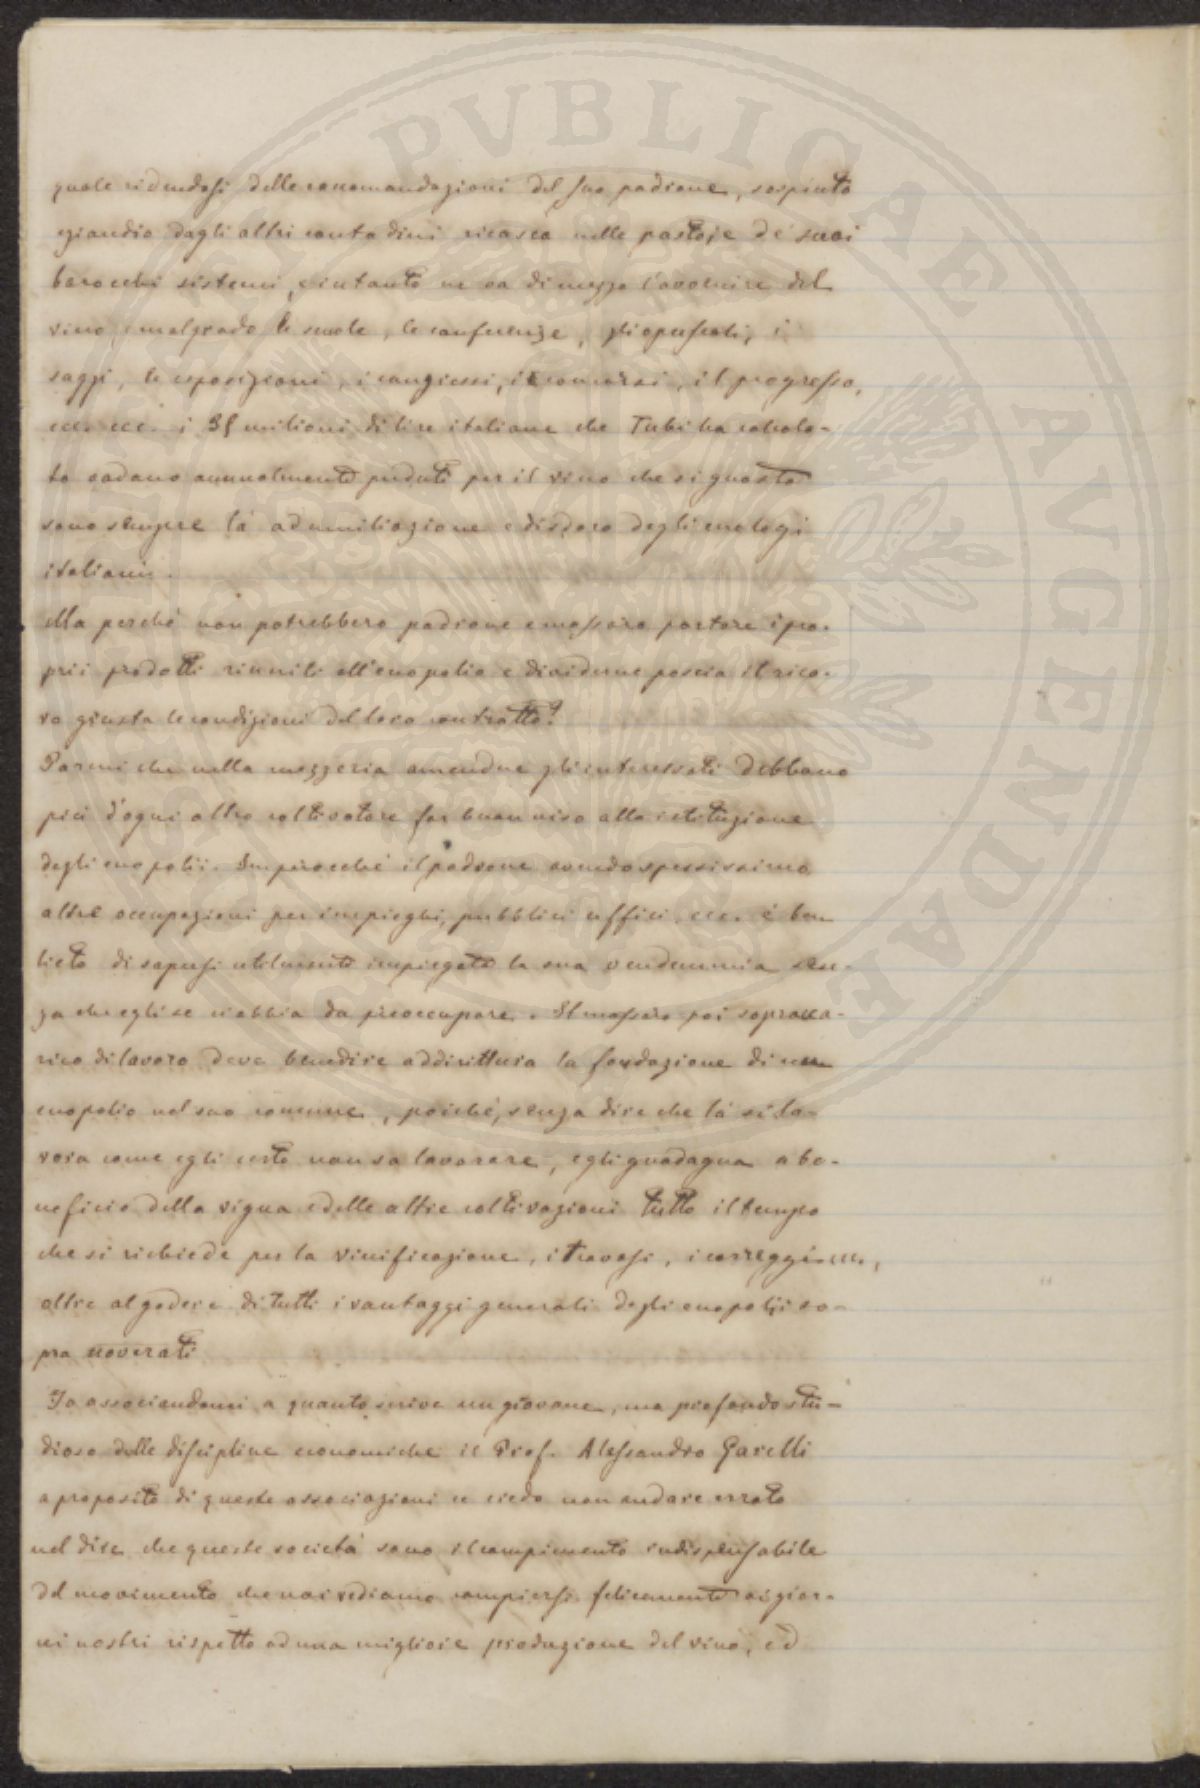 quale ridendosi delle raccomandazioni del suo padrone, sospinto
eziandio dagli altri contadini ricasca nelle pastoje de' suoi
barocchi sistemi, e intanto ne va di mezzo l'avvenire del
vino e malgrado le scuole, le conferenze, gli opuscoli, i
saggi, le esposizioni, i congressi, i concorsi, il progresso,
ecc. ecc. i 38 milioni di lire italiane che Tubi ha calcola-
to vadano annualmente perduti per il vino che si guasta
sono sempre là ad umiliazione e disdoro degli enologi
italiani.
Ma perché non potrebbero padrone e massaro portare i pro-
prii prodotti riuniti all'enopolio e dividerne poscia il rica-
vo giusta le condizioni del loro contratto?
Parmi che nella mezzeria amendue gli interessati debbano
più d'ogni altro coltivatore far buon viso alla istituzione
degli enopolii. Imperocché il padrone avendo spessissimo
altre occupazioni per impieghi, pubblici uffici, ecc. è ben
lieto di sapersi utilmente impiegata la sua vendemmia sen-
za che egli se ci abbia da preoccupare. Il massaro poi sopracca-
rico di lavoro deve benedire addirittura la fondazione di un
enopolio nel suo comune, poiché, senza dire che là si la-
vora come egli certo non sa lavorare, egli guadagna a be-
neficio della vigna e delle altre coltivazioni tutto il tempo
che si richiede per la vinificazione, i travasi, i carreggi ecc,
oltre al godere di tutti i vantaggi generali degli enopolii so-
pra noverati
Io associandomi a quanto scrive un giovane, ma profondo stu-
dioso delle discipline economiche il Prof. Alessandro Garelli
a proposito di queste associazioni e credo non andare errato
nel dire che queste società sono il compimento indispensabile
del movimento che noi vediamo compiersi felicemente ai gior-
ni nostri rispetto ad una migliore produzione del vino, ed
PVBLICAE AVGENDAE